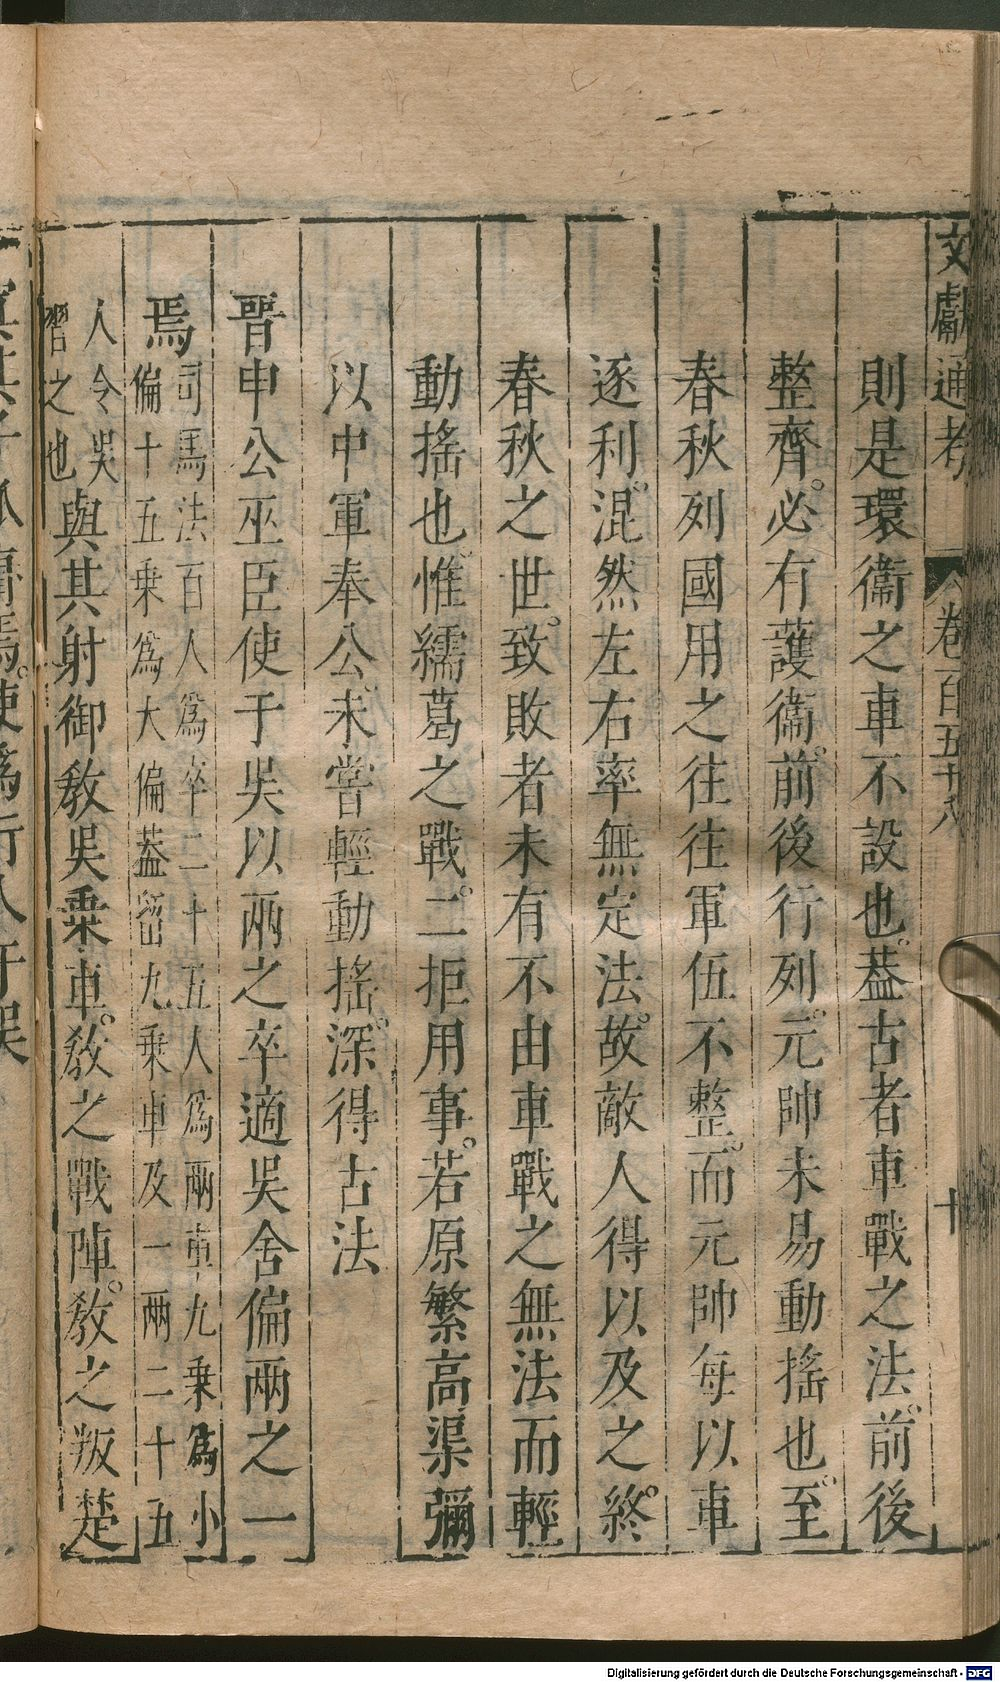 文獻通考 卷一百五十八 十
則是環衞之車不設也。葢古者車戰之法。前後
整齊。必有護衞。前後行列。元帥未易動搖也。至
春秋列國用之往往軍伍不整。而元帥每以車
逐利。混然左右率無定法。故敵人得以及之。終
春秋之世。致敗者未有不由車戰之無法而輕
動搖也。惟繻葛之戰。二拒用事。若原繁高渠彌
以中軍奉公。未嘗輕動搖。深得古法
晉申公巫臣使于吳以兩之卒適吳舍偏兩之一
焉司馬法百人爲卒二十五人爲兩車九乗爲小
偏十五乗爲大偏葢留九乗車及一兩二十五
人令吳
習之也與其射御敎吳乗車。敎之戰陣。敎之叛楚
寘其子狐庸焉。使爲行人于吳
Digitalisierung gefördert durch die Deutsche Forschungsgemeinschaft - DFG